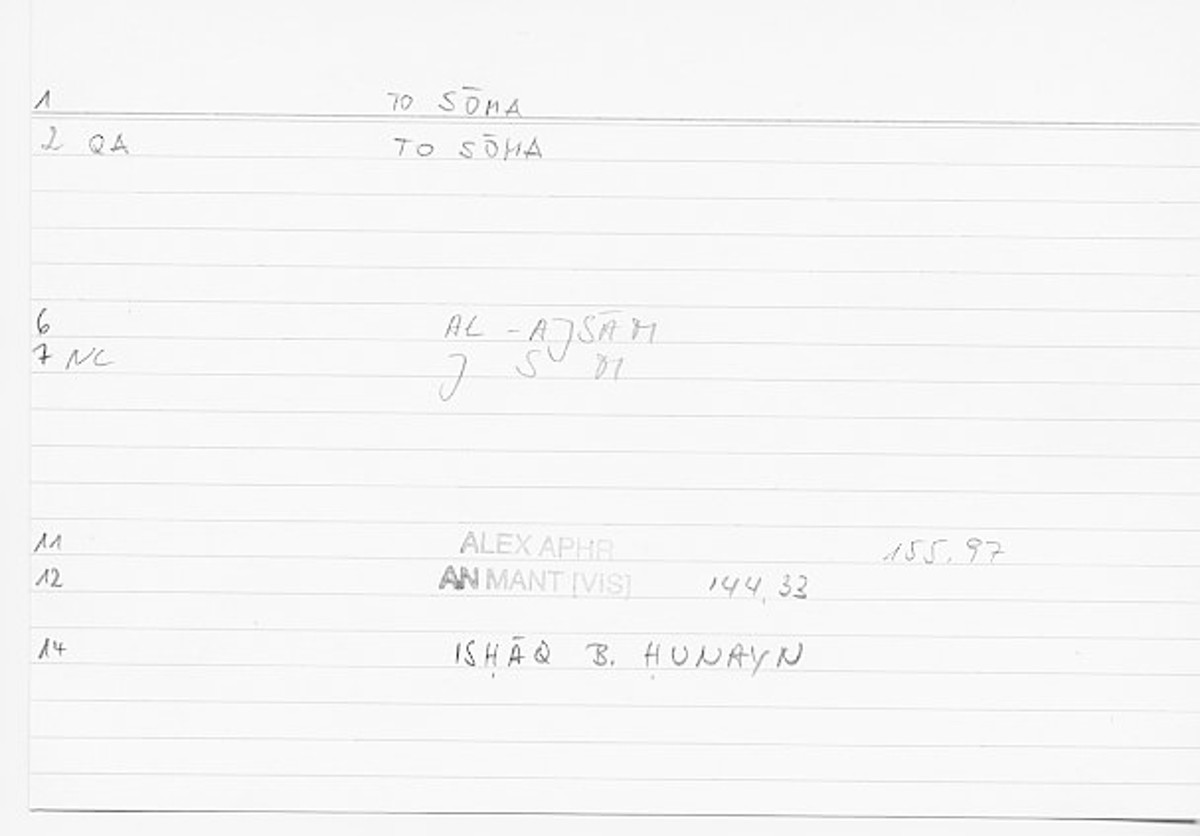 1 TO SŌMA
2 QA TO SŌMA
6 AL-AJSĀM
7 NC J S M
11 ALEX APHR 155.97
12 AN MANT [VIS] 144,33
14 ISḤĀQ B. ḤUNAYN